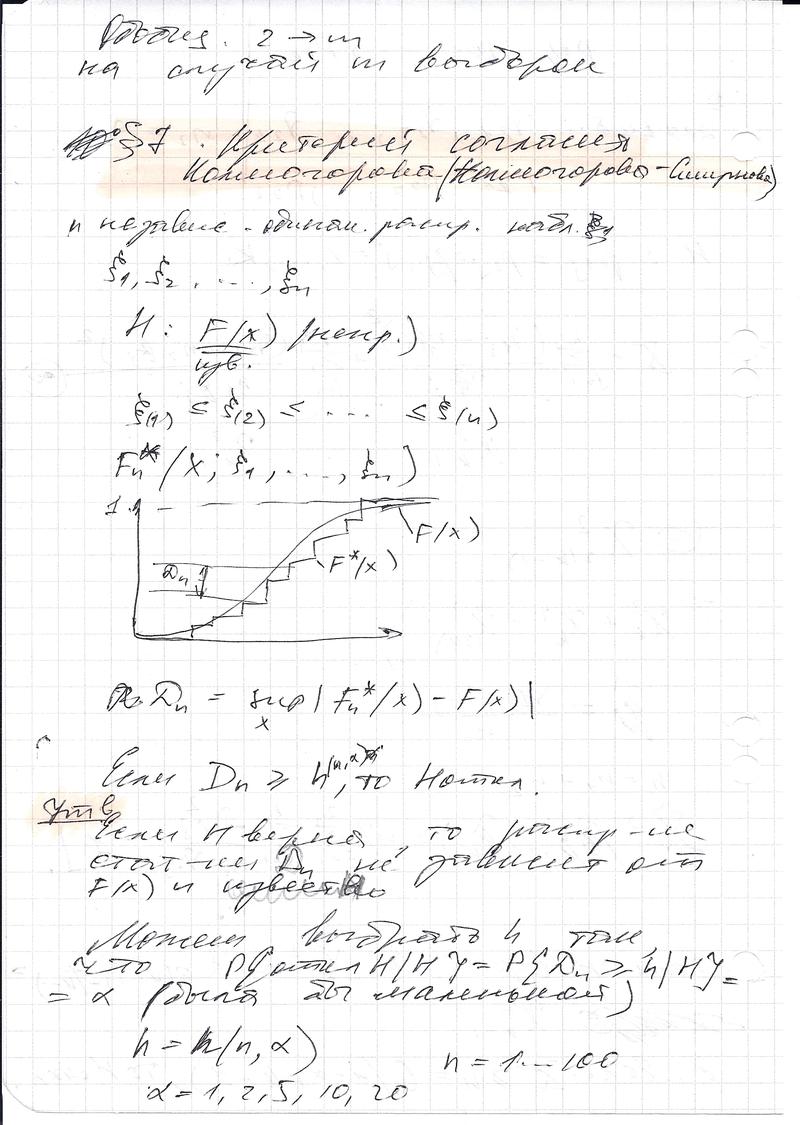 Обобщ. 2 → m
на случай m выборок
§7. Критерий согласия
Колмогорова (Колмогорова-Смирнова)
n независ. одинак. распр. набл.
ξ1, ξ2, ..., ξn
H: F(x) (непр.)
изв.
ξ(1) ≤ ξ(2) ≤ ... ≤ ξ(n)
Fn*(x; ξ1, ..., ξn)
1
F(x)
F*(x)
Dn
Dn = sup | Fn*(x) - F(x) |
x
Если Dn ≥ h(n,α), то H откл.
Утв
Если H верна, то распр-ие
стат-ки Dn не зависит от
F(x) и известно
Можем выбрать h так,
что P{откл H/H} = P{Dn ≥ h/H} =
= α (была бы маленькой)
h = h(n, α)
n = 1...100
α = 1, 2, 5, 10, 20